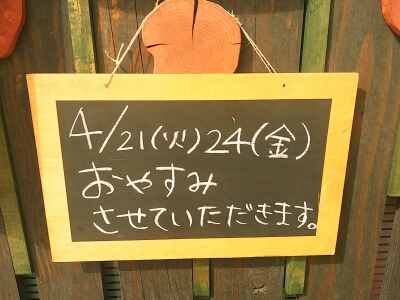 4/21(火)24(金)
おやすみ
させていただきます。